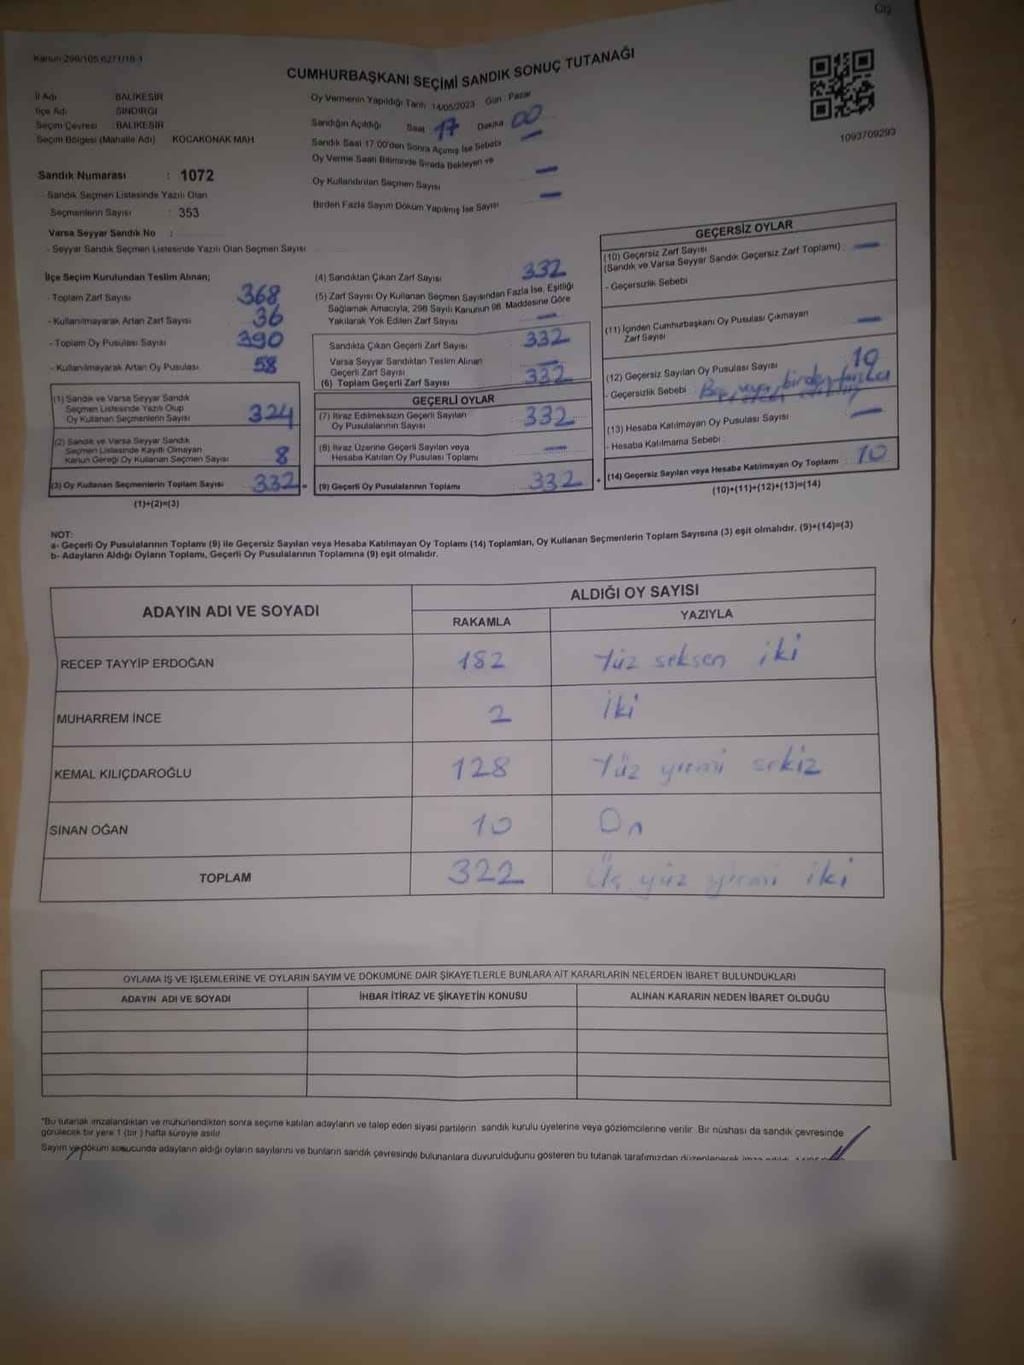 Kanun 298/105 6271/18-1
CUMHURBAŞKANI SEÇİMİ SANDIK SONUÇ TUTANAĞI
1093709293
İl Adı : BALIKESİR
İlçe Adı : SINDIRGI
Seçim Çevresi : BALIKESİR
Seçim Bölgesi (Mahalle Adı) KOCAKONAK MAH
Sandık Numarası : 1072
- Sandık Seçmen Listesinde Yazılı Olan
Seçmenlerin Sayısı : 353
Varsa Seyyar Sandık No :
- Seyyar Sandık Seçmen Listesinde Yazılı Olan Seçmen Sayısı
Oy Vermenin Yapıldığı Tarih 14/05/2023 Gün : Pazar
Sandığın Açıldığı Saat 17 Dakika 00
Sandık Saat 17:00'den Sonra Açılmış İse Sebebi —
Oy Verme Saati Bitiminde Sırada Bekleyen ve
Oy Kullandırılan Seçmen Sayısı —
Birden Fazla Sayım Döküm Yapılmış İse Sayısı —
İlçe Seçim Kurulundan Teslim Alınan;
- Toplam Zarf Sayısı 368
- Kullanılmayarak Artan Zarf Sayısı 36
- Toplam Oy Pusulası Sayısı 390
- Kullanılmayarak Artan Oy Pusulası 58
(1) Sandık ve Varsa Seyyar Sandık
Seçmen Listesinde Yazılı Olup
Oy Kullanan Seçmenlerin Sayısı 324
(2) Sandık ve Varsa Seyyar Sandık
Seçmen Listesinde Kayıtlı Olmayan
Kanun Gereği Oy Kullanan Seçmen Sayısı 8
(3) Oy Kullanan Seçmenlerin Toplam Sayısı 332 =
(1)+(2)=(3)
(4) Sandıktan Çıkan Zarf Sayısı 332
(5) Zarf Sayısı Oy Kullanan Seçmen Sayısından Fazla İse, Eşitliği
Sağlamak Amacıyla, 298 Sayılı Kanunun 98. Maddesine Göre
Yakılarak Yok Edilen Zarf Sayısı —
Sandıkta Çıkan Geçerli Zarf Sayısı 332
Varsa Seyyar Sandıktan Teslim Alınan
Geçerli Zarf Sayısı —
(6) Toplam Geçerli Zarf Sayısı 332
GEÇERLİ OYLAR
(7) İtiraz Edilmeksizin Geçerli Sayılan
Oy Pusulalarının Sayısı 332
(8) İtiraz Üzerine Geçerli Sayılan veya
Hesaba Katılan Oy Pusulası Toplamı —
(9) Geçerli Oy Pusulalarının Toplamı 332 +
GEÇERSİZ OYLAR
(10) Geçersiz Zarf Sayısı
(Sandık ve Varsa Seyyar Sandık Geçersiz Zarf Toplamı) —
- Geçersizlik Sebebi
(11) İçinden Cumhurbaşkanı Oy Pusulası Çıkmayan
Zarf Sayısı —
(12) Geçersiz Sayılan Oy Pusulası Sayısı 10
- Geçersizlik Sebebi Boş veya birden fazla
(13) Hesaba Katılmayan Oy Pusulası Sayısı —
- Hesaba Katılmama Sebebi
(14) Geçersiz Sayılan veya Hesaba Katılmayan Oy Toplamı 10
(10)+(11)+(12)+(13)=(14)
NOT:
a- Geçerli Oy Pusulalarının Toplamı (9) ile Geçersiz Sayılan veya Hesaba Katılmayan Oy Toplamı (14) Toplamları, Oy Kullanan Seçmenlerin Toplam Sayısına (3) eşit olmalıdır. (9)+(14)=(3)
b- Adayların Aldığı Oyların Toplamı, Geçerli Oy Pusulalarının Toplamına (9) eşit olmalıdır.
ADAYIN ADI VE SOYADI
ALDIĞI OY SAYISI
RAKAMLA YAZIYLA
RECEP TAYYİP ERDOĞAN 182 Yüz seksen iki
MUHARREM İNCE 2 İki
KEMAL KILIÇDAROĞLU 128 Yüz yirmi sekiz
SİNAN OĞAN 10 On
TOPLAM 322 Üç yüz yirmi iki
OYLAMA İŞ VE İŞLEMLERİNE VE OYLARIN SAYIM VE DÖKÜMÜNE DAİR ŞİKAYETLERLE BUNLARA AİT KARARLARIN NELERDEN İBARET BULUNDUKLARI
ADAYIN ADI VE SOYADI İHBAR İTİRAZ VE ŞİKAYETİN KONUSU ALINAN KARARIN NEDEN İBARET OLDUĞU
*Bu tutanak imzalandıktan ve mühürlendikten sonra seçime katılan adayların ve talep eden siyasi partilerin sandık kurulu üyelerine veya gözlemcilerine verilir. Bir nüshası da sandık çevresinde
görülecek bir yere 1 (bir) hafta süreyle asılır.
Sayım ve döküm sonucunda adayların aldığı oyların sayılarını ve bunların sandık çevresinde bulunanlara duyurulduğunu gösteren bu tutanak tarafımızdan düzenlenerek